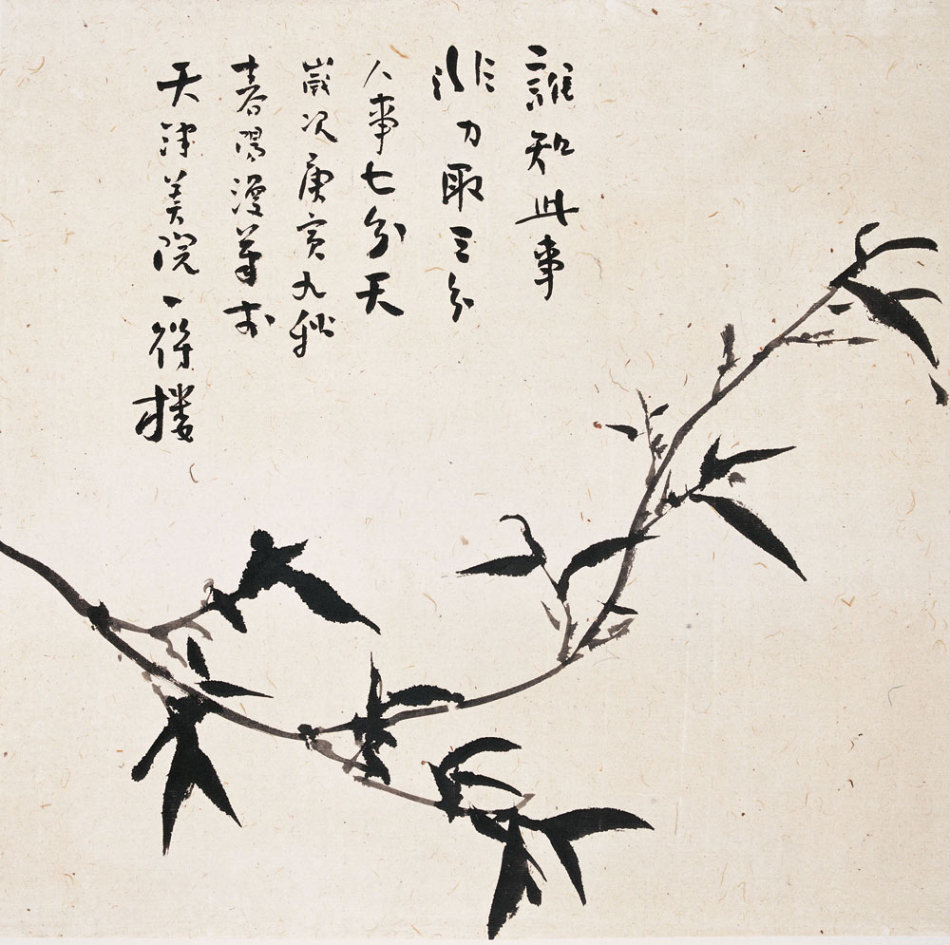 誰知此事
非力取三分
人事七分天
歲次庚寅九秋
春陽漫筆於
天津美院一得樓